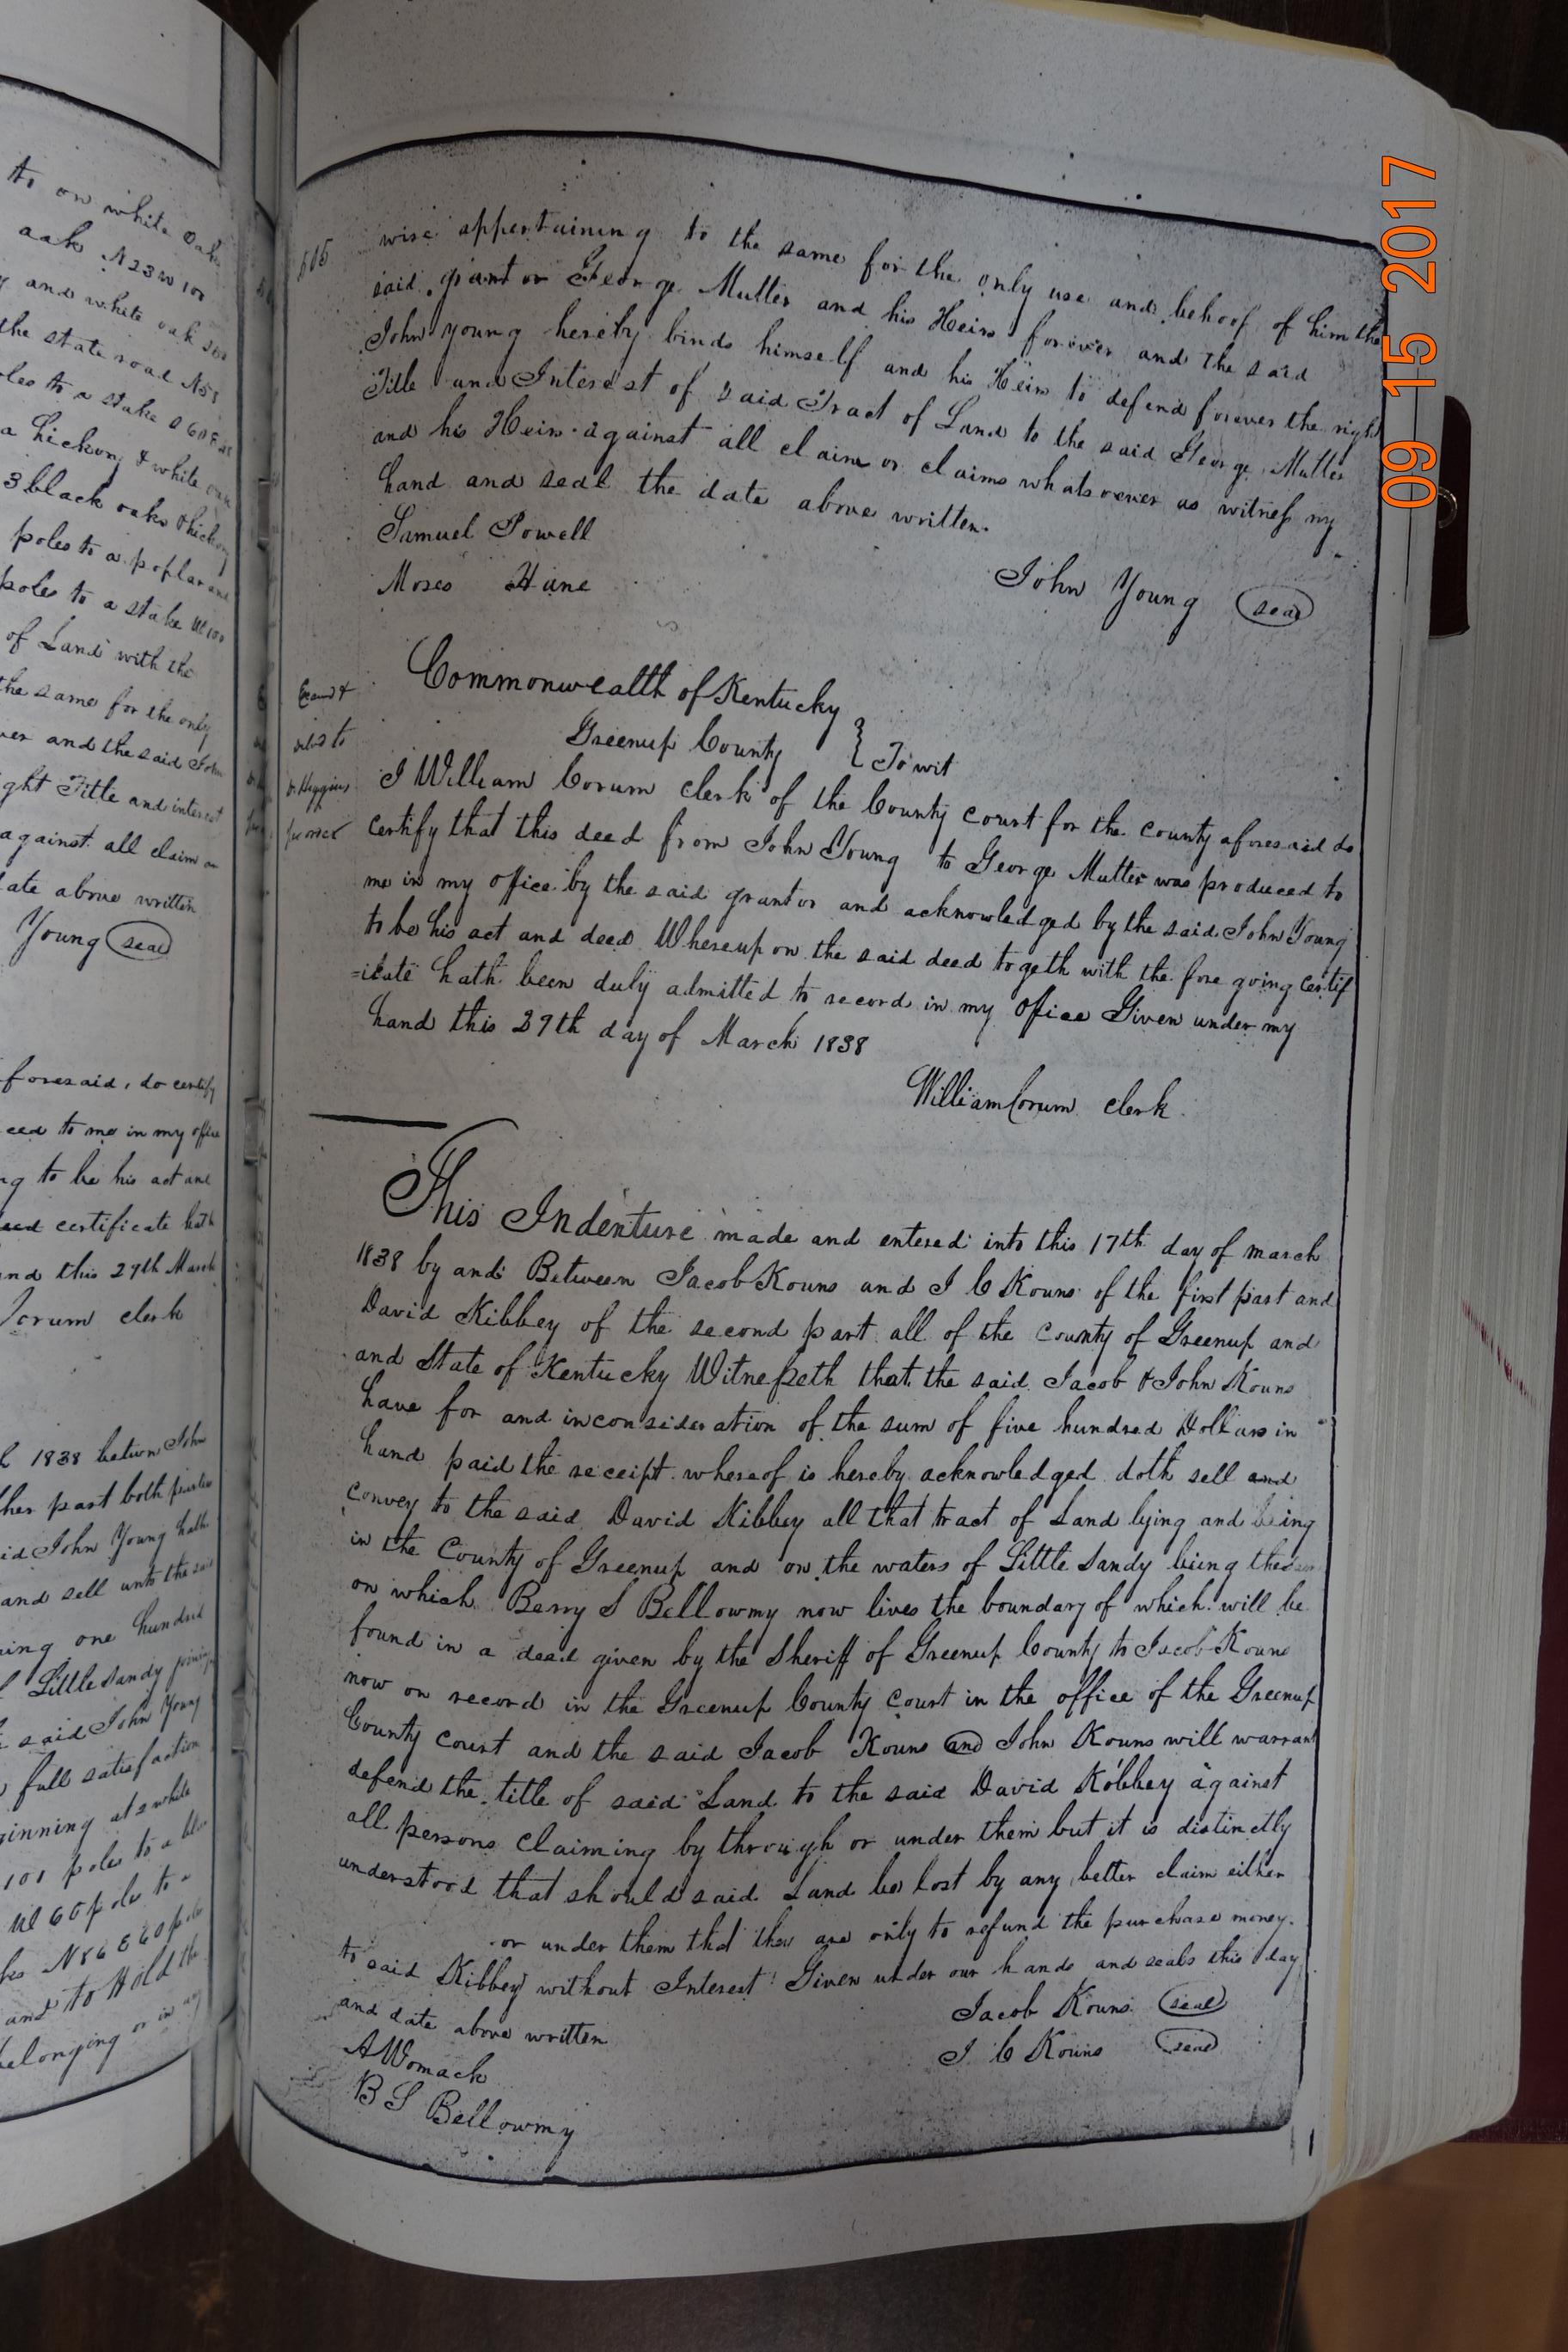 to on white Oak
oak N 23 W 100
and white oak
the state road N 51
poles to a stake S 60 E
a hickory & white oak
3 black oaks & hickory
poles to a poplar and
poles to a stake W 100
of Land with the
the same for the only
ver and the said John
ght Title and interest
against all claim or
date above written
Young seal
foresaid, do certify
ced to me in my office
ng to be his act and
certificate hath
and this 29th March
Corum clerk
1838 between John
ther part both parties
id John Young hath
and sell unto the said
ing one hundred
Little Sandy
said John Young
full satisfaction
ginning at a white
101 poles to a
W 60 poles to a
N 86 E 60 poles
and to Hold the
belonging or in any
wise appertaining to the same for the only use and behoof of him the
said grantor George Mutter and his Heirs forever and the said
John Young hereby binds himself and his Heirs to defend forever the right
Title and Interest of said Tract of Land to the said George Mutter
and his Heirs against all claim or claims whatsoever as witness my
hand and seal the date above written.
Samuel Powell
Moses Hane
John Young seal
Examd &
deld to
Higgins
Commonwealth of Kentucky
Greenup County } To wit
I William Corum clerk of the County court for the county aforesaid do
certify that this deed from John Young to George Mutter was produced to
me in my office by the said grantor and acknowledged by the said John Young
to be his act and deed Whereupon the said deed togeth with the fore going certif
=icate hath been duly admitted to record in my Office Given under my
hand this 29th day of March 1838
William Corum clerk
This Indenture made and entered into this 17th day of march
1838 by and Between Jacob Kouns and J C Kouns of the first part and
David Kibbey of the second part all of the county of Greenup and
and State of Kentucky Witnesseth that the said Jacob & John Kouns
have for and in consideration of the sum of five hundred Dollars in
hand paid the receipt whereof is hereby acknowledged doth sell and
convey to the said David Kibbey all that tract of Land lying and being
in the County of Greenup and on the waters of Little Sandy being the
on which Berry S Bellowmy now lives the boundary of which will be
found in a deed given by the Sheriff of Greenup County to Jacob Kouns
now on record in the Greenup County court in the office of the Greenup
County court and the said Jacob Kouns and John Kouns will warrant
defend the title of said Land to the said David Kibbey against
all persons claiming by through or under them but it is distinctly
understood that should said Land be lost by any better claim either
or under them that they are only to refund the purchase money
to said Kibbey without Interest Given under our hands and seals this day
and date above written
Jacob Kouns seal
J C Kouns seal
A Womack
B S Bellowmy
09 15 2017